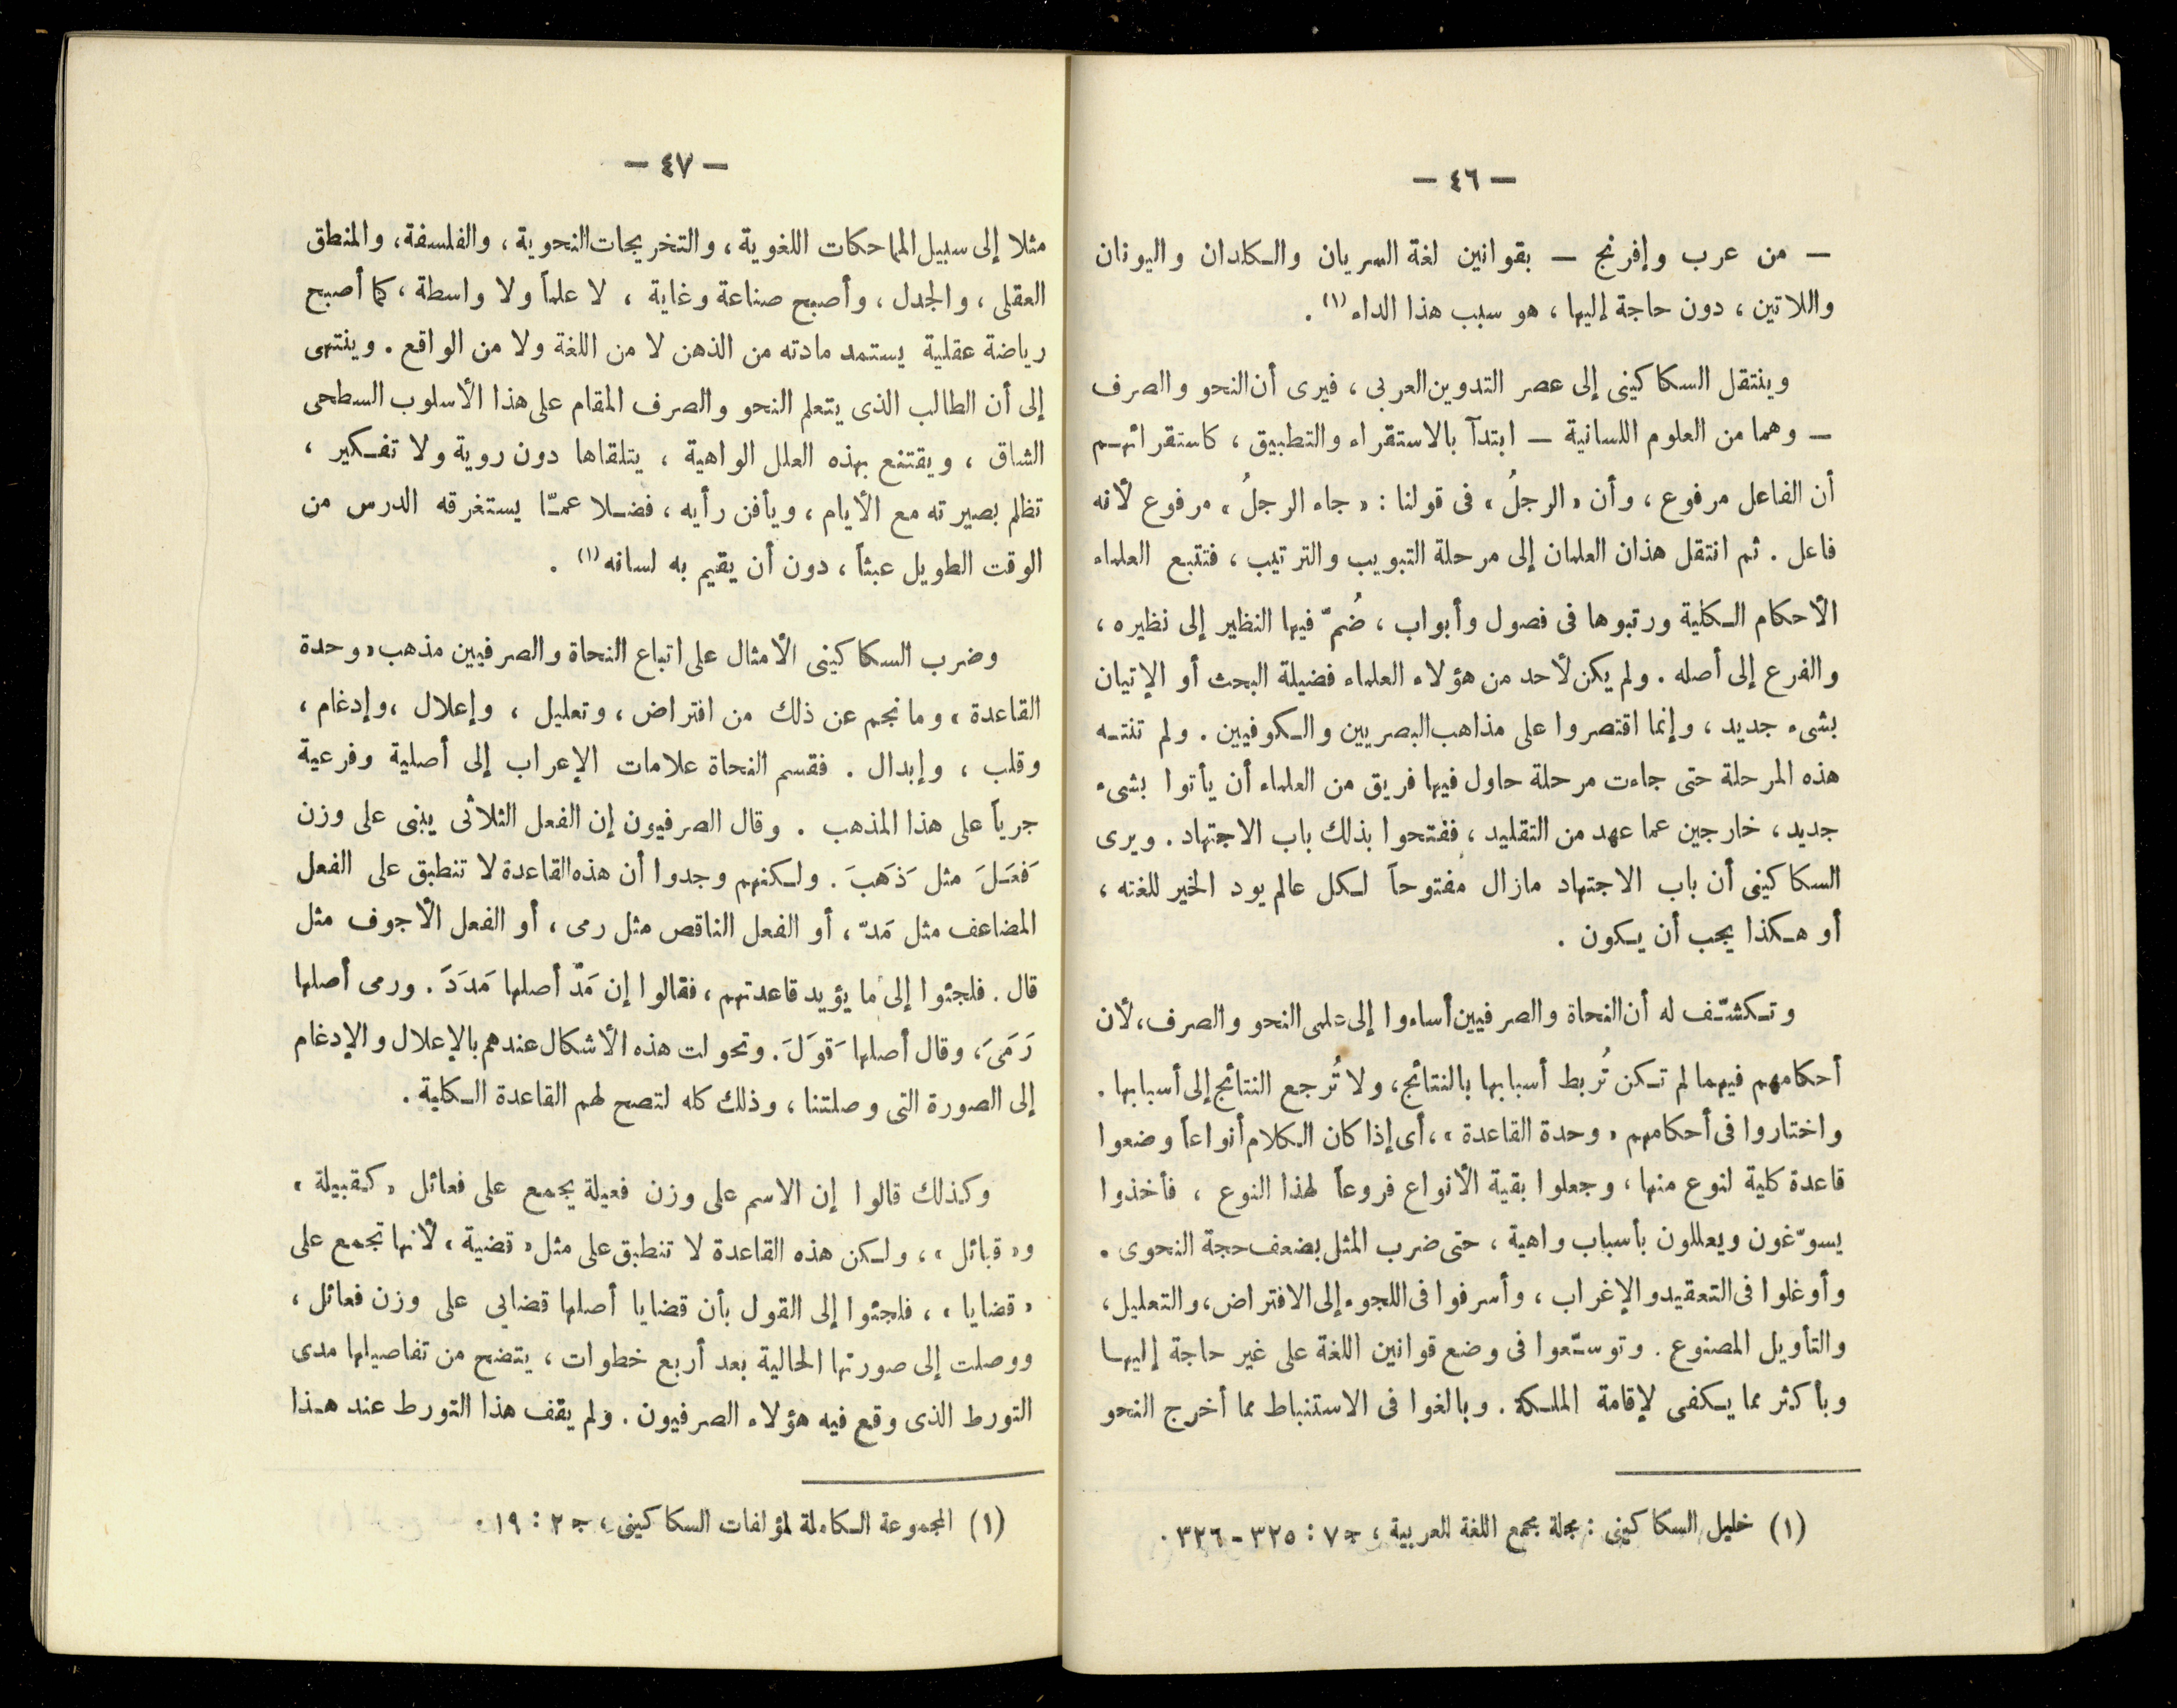 — ٤٦ —
— من عرب وإفرنج — بقوانين لغة السريان والكلدان واليونان
واللاتين ، دون حاجة إليها ، هو سبب هذا الداء (١) .
وينتقل السكاكينى إلى عصر التدوين العربى ، فيرى أن النحو والصرف
— وهما من العلوم اللسانية — ابتدآ بالاستقراء والتطبيق ، كاستقرائهم
أن الفاعل مرفوع ، وأن « الرجلُ » فى قولنا : « جاء الرجلُ » مرفوع لأنه
فاعل . ثم انتقل هذان العلمان إلى مرحلة التبويب والترتيب ، فتتبع العلماء
الأحكام الكلية ورتبوها فى فصول وأبواب ، ضُمّ فيها النظير إلى نظيره ،
والفرع إلى أصله . ولم يكن لأحد من هؤلاء العلماء فضيلة البحث أو الإتيان
بشىء جديد ، وإنما اقتصروا على مذاهب البصريين والكوفيين . ولم تنته
هذه المرحلة حتى جاءت مرحلة حاول فيها فريق من العلماء أن يأتوا بشىء
جديد ، خارجين عما عهد من التقليد ، ففتحوا بذلك باب الاجتهاد . ويرى
السكاكينى أن باب الاجتهاد مازال مفتوحاً لكل عالم يود الخير للغته ،
أو هكذا يجب أن يكون .
وتكشّف له أن النحاة والصرفيين أساءوا إلى علمى النحو والصرف ، لأن
أحكامهم فيهما لم تكن تُربط أسبابها بالنتائج ، ولا تُرجع النتائج إلى أسبابها .
واختاروا فى أحكامهم « وحدة القاعدة » ، أى إذا كان الكلام أنواعاً وضعوا
قاعدة كلية لنوع منها ، وجعلوا بقية الأنواع فروعاً لهذا النوع ، فأخذوا
يسوّغون ويعللون بأسباب واهية ، حتى ضرب المثل بضعف حجة النحوى .
وأوغلوا فى التعقيد والإغراب ، وأسرفوا فى اللجوء إلى الافتراض ، والتعليل ،
والتأويل المصنوع . وتوسّعوا فى وضع قوانين اللغة على غير حاجة إليها
وبأكثر مما يكفى لإقامة الملكة . وبالغوا فى الاستنباط مما أخرج النحو
(١) خليل السكاكينى : مجلة مجمع اللغة العربية ، ج ٧ : ٣٢٥ - ٣٢٦ .
— ٤٧ —
مثلا إلى سبيل المماحكات اللغوية ، والتخريجات النحوية ، والفلسفة ، والمنطق
العقلى ، والجدل ، وأصبح صناعة وغاية ، لا علماً ولا واسطة ، كما أصبح
رياضة عقلية يستمد مادته من الذهن لا من اللغة ولا من الواقع . وينتهى
إلى أن الطالب الذى يتعلم النحو والصرف المقام على هذا الأسلوب السطحى
الشاق ، ويقتنع بهذه العلل الواهية ، يتلقاها دون روية ولا تفكير ،
تظلم بصيرته مع الأيام ، ويأفن رأيه ، فضلا عمّا يستغرقه الدرس من
الوقت الطويل عبثاً ، دون أن يقيم به لسانه (١) .
وضرب السكاكينى الأمثال على اتباع النحاة والصرفيين مذهب « وحدة
القاعدة » وما نجم عن ذلك من افتراض ، وتعليل ، وإعلال ، وإدغام ،
وقلب ، وإبدال . فقسم النحاة علامات الإعراب إلى أصلية وفرعية
جرياً على هذا المذهب . وقال الصرفيون إن الفعل الثلاثى يبنى على وزن
فَعَلَ مثل ذَهَبَ . ولكنهم وجدوا أن هذه القاعدة لا تنطبق على الفعل
المضاعف مثل مَدّ ، أو الفعل الناقص مثل رمى ، أو الفعل الأجوف مثل
قال . فلجئوا إلى ما يؤيد قاعدتهم ، فقالوا إن مَدّ أصلها مَدَدَ . ورمى أصلها
رَمَىَ ، وقال أصلها قَوَلَ . وتحولت هذه الأشكال عندهم بالإعلال والإدغام
إلى الصورة التى وصلتنا ، وذلك كله لتصح لهم القاعدة الكلية .
وكذلك قالوا إن الاسم على وزن فعيلة يجمع على فعائل « كقبيلة »
و « قبائل » ، ولكن هذه القاعدة لا تنطبق على مثل « قضية » لأنها تجمع على
« قضايا » ، فلجئوا إلى القول بأن قضايا أصلها قضايى على وزن فعائل ،
ووصلت إلى صورتها الحالية بعد أربع خطوات ، يتضح من تفاصيلها مدى
التورط الذى وقع فيه هؤلاء الصرفيون . ولم يقف هذا التورط عند هذا
(١) المجموعة الكاملة لمؤلفات السكاكينى ، ج ٢ : ١٩ .